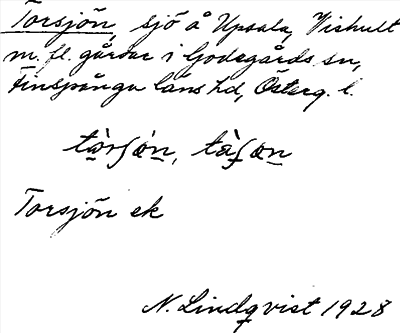 Torsjön, sjö å Upsala, Vishult
m. fl. gårdar i Godegårds sn,
Finspånga läns hd, Österg. l.
Torsjön ek
N. Lindqvist 1928